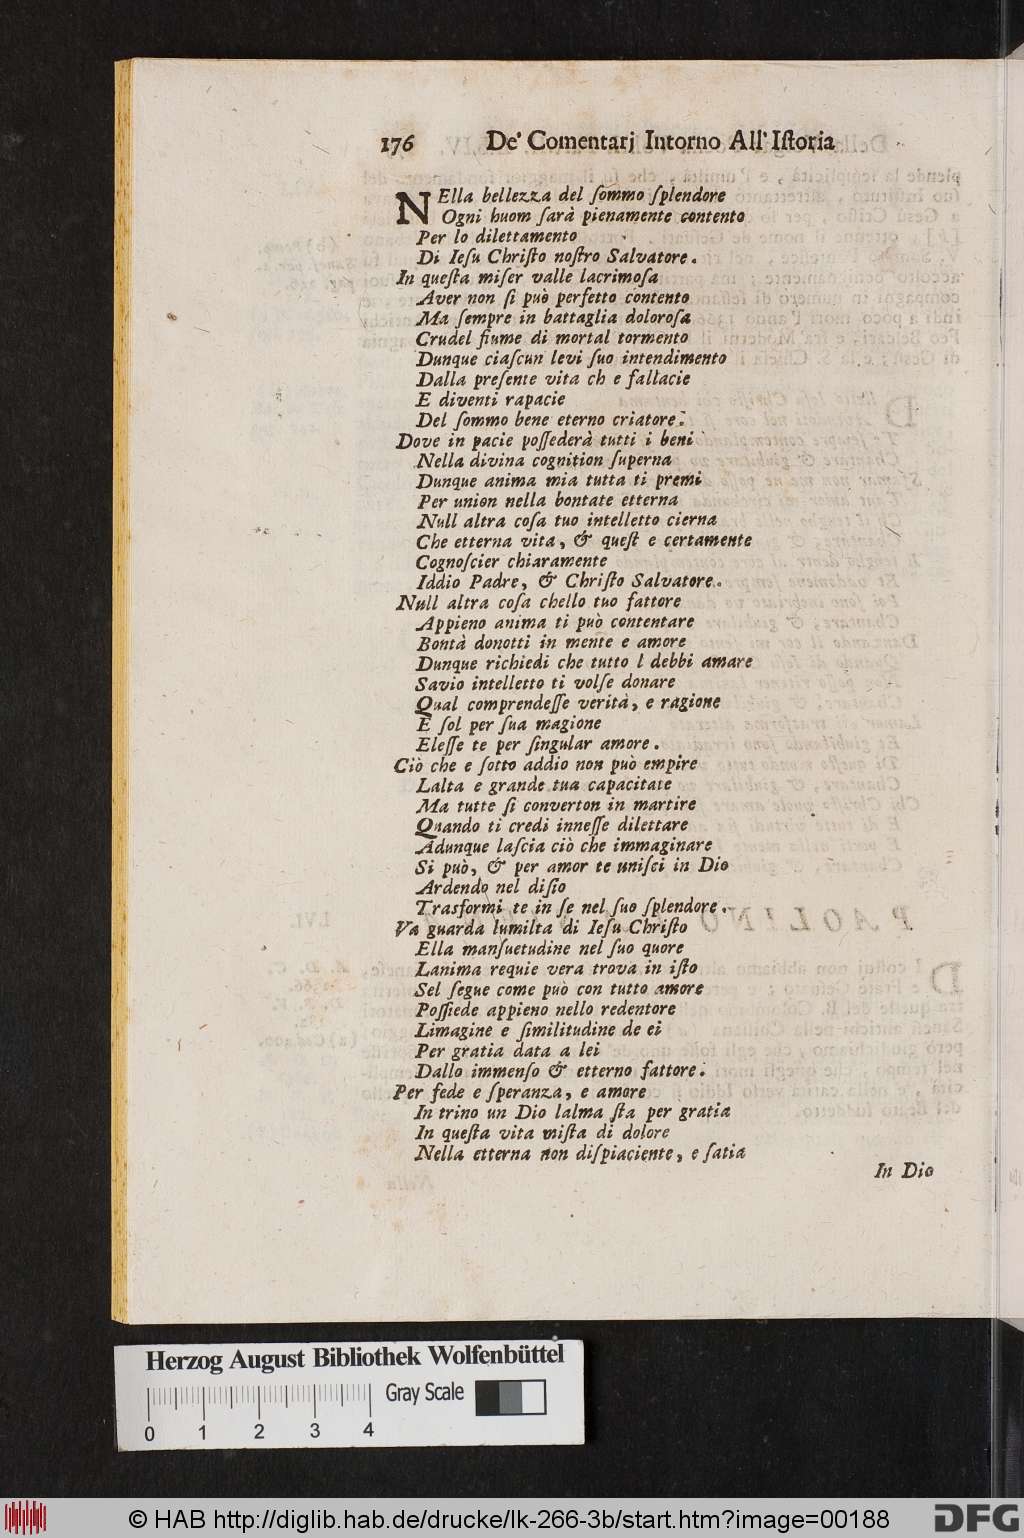 176 De' Comentarj Intorno All' Iſtoria
NElla bellezza del ſommo ſplendore
Ogni huom ſarà pienamente contento
Per lo dilettamento
Di Ieſu Chriſto noſtro Salvatore.
In queſta miſer valle lacrimoſa
Aver non ſi può perfetto contento
Ma ſempre in battaglia doloroſa
Crudel fiume di mortal tormento
Dunque ciaſcun levi ſuo intendimento
Dalla preſente vita ch e fallacie
E diventi rapacie
Del ſommo bene eterno criatore.
Dove in pacie poſſederà tutti i beni
Nella divina cognition ſuperna
Dunque anima mia tutta ti premi
Per union nella bontate etterna
Null altra coſa tuo intelletto cierna
Che etterna vita, & queſt e certamente
Cognoſcier chiaramente
Iddio Padre, & Chriſto Salvatore.
Null altra coſa chello tuo fattore
Appieno anima ti può contentare
Bontà donotti in mente e amore
Dunque richiedi che tutto l debbi amare
Savio intelletto ti volſe donare
Qual comprendeſſe verità, e ragione
E ſol per ſua magione
Eleſſe te per ſingular amore.
Ciò che e ſotto addio non può empire
Lalta e grande tua capacitate
Ma tutte ſi converton in martire
Quando ti credi inneſſe dilettare
Adunque laſcia ciò che immaginare
Si può, & per amor te uniſci in Dio
Ardendo nel diſio
Trasformi te in ſe nel ſuo ſplendore.
Va guarda lumilta di Ieſu Chriſto
Ella manſuetudine nel ſuo quore
Lanima requie vera trova in iſto
Sel ſegue come può con tutto amore
Poſſiede appieno nello redentore
Limagine e ſimilitudine de ei
Per gratia data a lei
Dallo immenſo & etterno fattore.
Per fede e ſperanza, e amore
In trino un Dio lalma ſta per gratia
In queſta vita miſta di dolore
Nella etterna non diſpiaciente, e ſatia
In Dio
Herzog August Bibliothek Wolfenbüttel
Gray Scale
0 1 2 3 4
© HAB http://diglib.hab.de/drucke/lk-266-3b/start.htm?image=00188
DFG